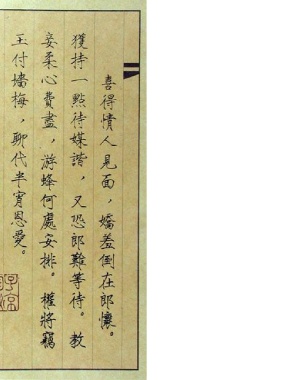 喜得情人見面，嬌羞倒在郎懷。
獲持一點待媒諧，又恐郎難等待。教
妾柔心費盡，游蜂何處安排。權將竊
玉付墻梅，聊代半宵恩愛。